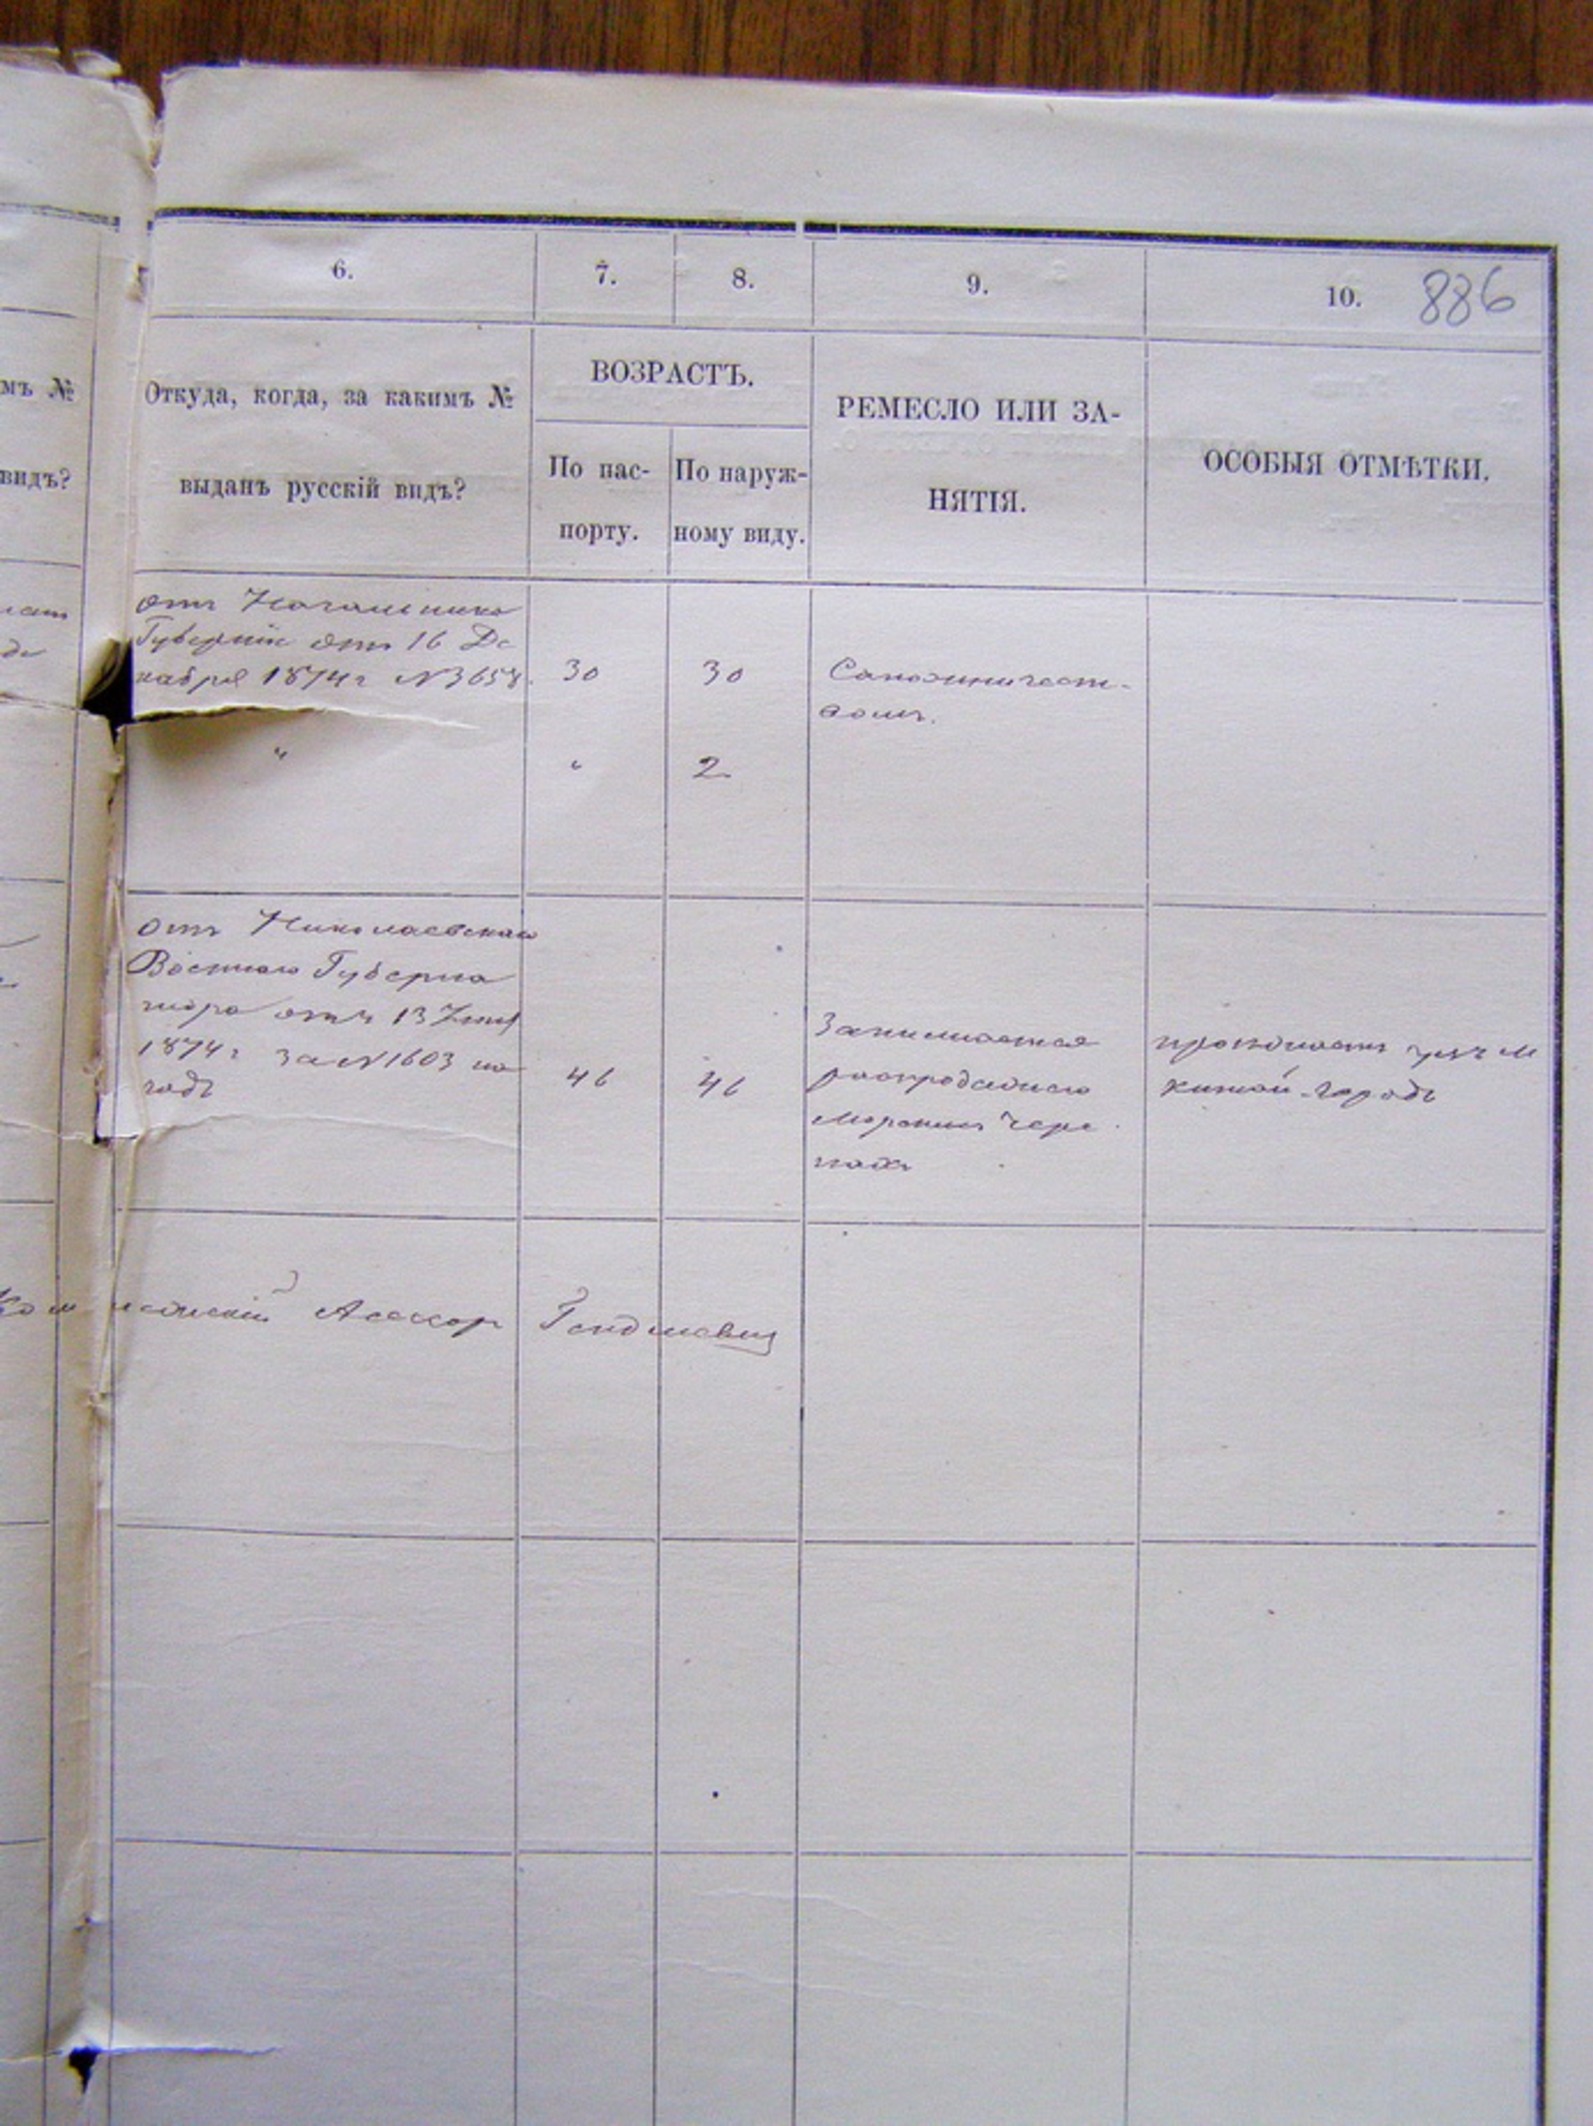 6.
7.
8.
9.
10.
886
мъ №
видъ?
Откуда, когда, за какимъ №
выданъ русскій видъ?
ВОЗРАСТЪ.
По пас-
порту.
По наруж-
ному виду.
РЕМЕСЛО ИЛИ ЗА-
НЯТІЯ.
ОСОБЫЯ ОТМѢТКИ.
отъ Начальника
Губерніи отъ 16 Де
кабря 1874 г №3658.
30
30
Сапожничест-
вомъ.
"
"
2
отъ Николаевскаго
Военнаго Губерна
тора отъ 13
1874 г за №1603 на
годъ
46
46
Занимается
распродажею
морскихъ чере
пахъ
проживаетъ
китай-городъ
Асессор